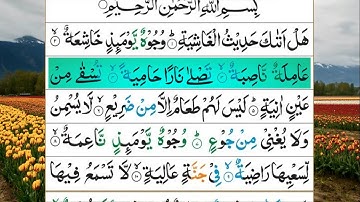 بِسْمِ اللّٰهِ الرَّحْمٰنِ الرَّحِيْمِ
هَلْ اَتٰىكَ حَدِيْثُ الْغَاشِيَةِ ؕ وُجُوْهٌ يَّوْمَىِٕذٍ خَاشِعَةٌ ۙ
عَامِلَةٌ نَّاصِبَةٌ ۙ تَصْلٰى نَارًا حَامِيَةً ۙ تُسْقٰى مِنْ
عَيْنٍ اٰنِيَةٍ ؕ لَيْسَ لَهُمْ طَعَامٌ اِلَّا مِنْ ضَرِيْعٍ ۙ لَّا يُسْمِنُ
وَلَا يُغْنِىْ مِنْ جُوْعٍ ؕ وُجُوْهٌ يَّوْمَىِٕذٍ نَّاعِمَةٌ ۙ
لِّسَعْيِهَا رَاضِيَةٌ ۙ فِىْ جَنَّةٍ عَالِيَةٍ ۙ لَّا تَسْمَعُ فِيْهَا